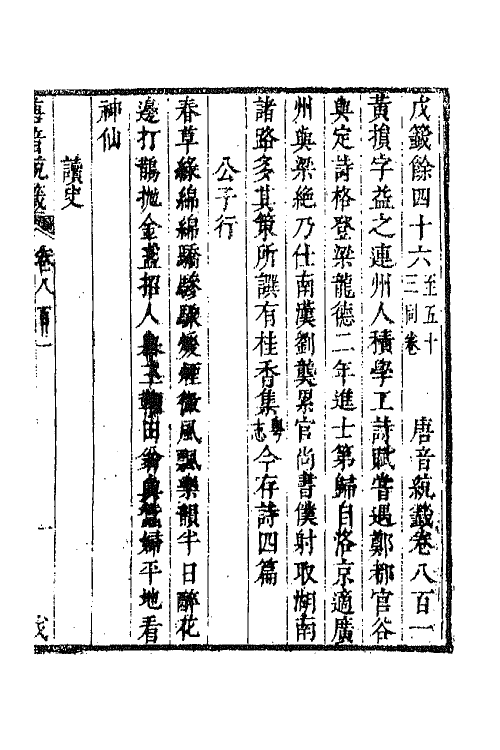 戊籖餘四十六至五十三同卷 唐音統籖卷八百一
黃損字益之連州人積學工詩賦嘗遇鄭都官谷
與定詩格登梁龍德二年進士第歸自洛京適廣
州與梁絶乃仕南漢劉龑累官尚書僕射取湖南
諸路多其策所譔有桂香集粵志今存詩四篇
公子行
春草綠綿綿驕驂驟煖煙微風飄樂韻半日醉花
邊打鵲抛金盞招人舉玉鞭田翁與蠶婦平地看
神仙
讀史
唐音統籖 卷八百一 一 戊